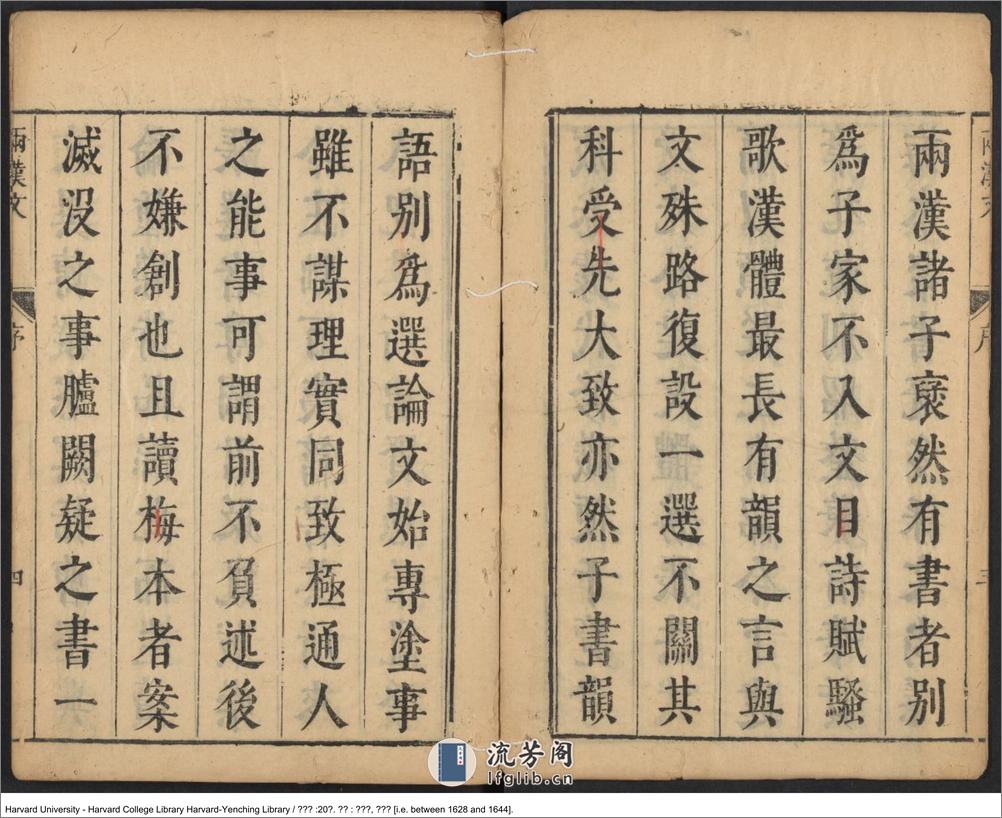 兩漢諸子裦然有書者别
爲子家不入文目詩賦騷
歌漢體最長有韻之言與
文殊路復設一選不關其
科受先大致亦然子書韻
語别爲選論文始專塗事
雖不謀理實同致極通人
之能事可謂前不負述後
不嫌創也且讀梅本者案
滅没之事臚闕疑之書一
兩漢文
序
三
兩漢文
序
四
流芳阁
lfglib.cn
Harvard University - Harvard College Library Harvard-Yenching Library / ??? :20?. ?? : ???, ??? [i.e. between 1628 and 1644].